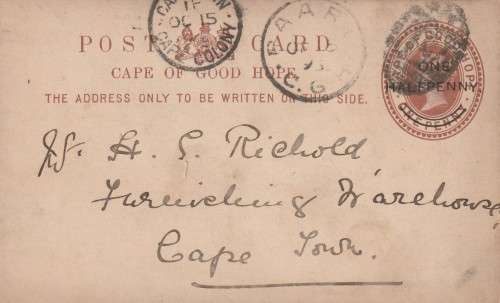 POST CARD
CAPE OF GOOD HOPE
THE ADDRESS ONLY TO BE WRITTEN ON THIS SIDE.
OC 15
COLONY
AAR
C.G.H
ONE
HALFPENNY
ONE PENNY
H. S. Richold
Furnishing Warehouse
Cape Town.